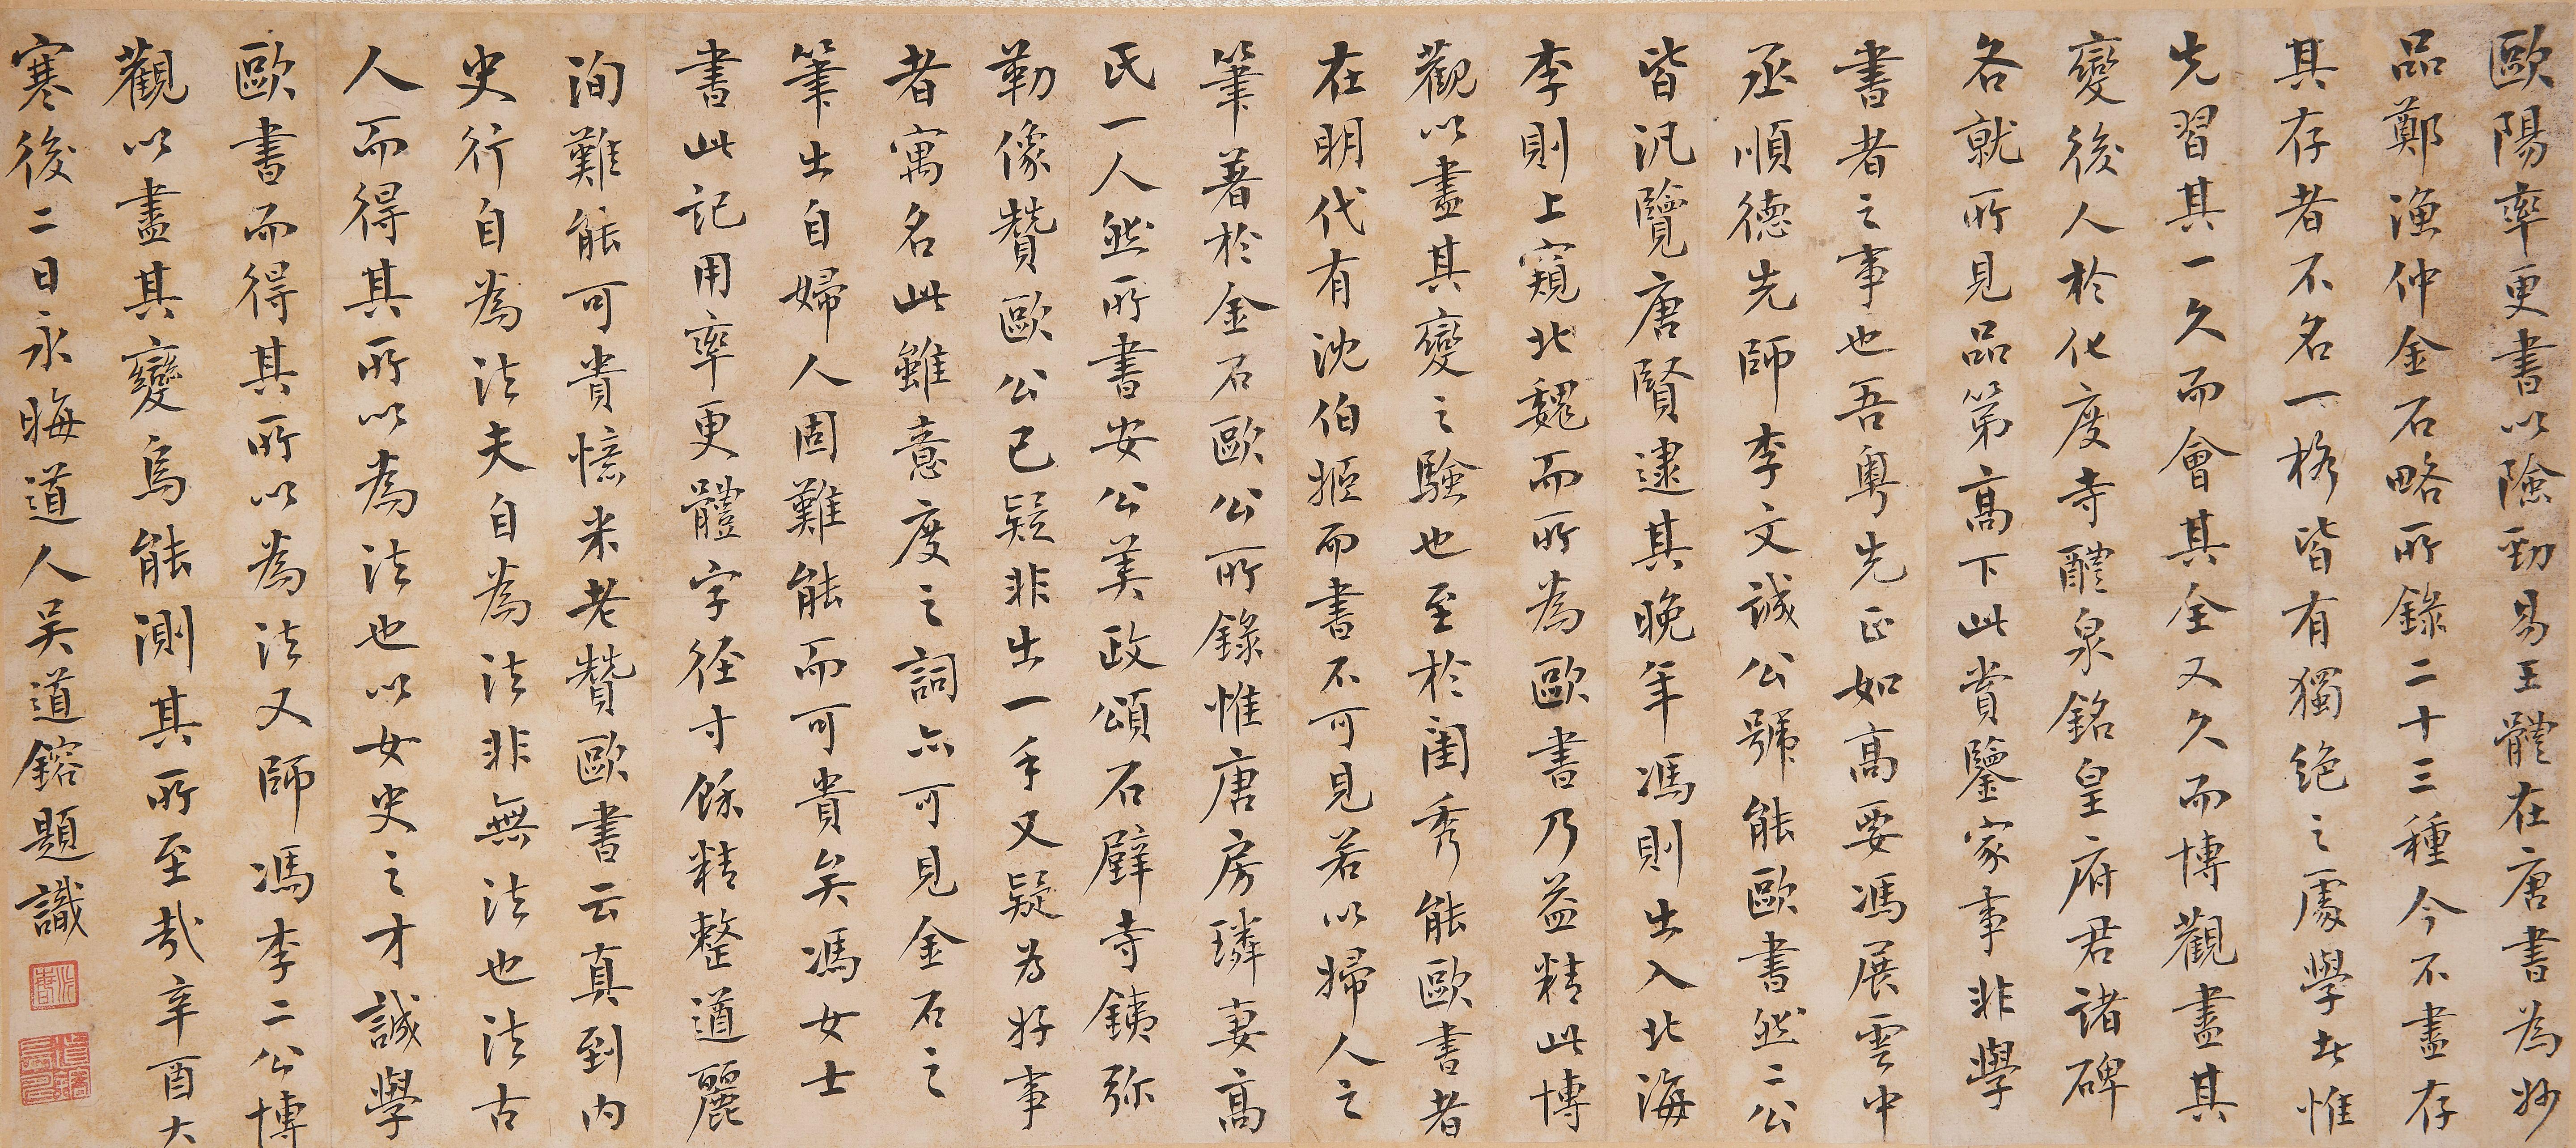 歐陽率更書以險勁易王體在唐書為妙
品鄭漁仲金石略所錄二十三種今不盡存
其存者不名一格皆有獨絕之處學者惟
先習其一久而會其全又久而博觀盡其
變後人於化度寺醴泉銘皇府君諸碑
各就所見品第高下此賞鑒家事非學
書者之事也吾粵先正如高要馮展雲中
丞順德先師李文誠公號能歐書然二公
皆汎覽唐賢逮其晚年馮則出入北海
李則上窺北魏而所為歐書乃益精此博
觀以盡其變之驗也至於閨秀能歐書者
在明代有沈伯姬而書不可見若以婦人之
筆著於金石歐公所錄惟唐房璘妻高
氏一人然所書安公美政頌石壁寺鐵弥
勒像贊歐公已疑非出一手又疑為好事
者寓名此雖意度之詞亦可見金石之
筆出自婦人固難能而可貴矣馮女士
書此記用率更體字徑寸餘精整遒麗
洵難能可貴憶米老贊歐書云真到內
史行自為法夫自為法非無法也法古
人而得其所以為法也以女史之才誠學
歐書而得其所以為法又師馮李二公博
觀以盡其變烏能測其所至哉辛酉大
寒後二日永晦道人吳道鎔題識